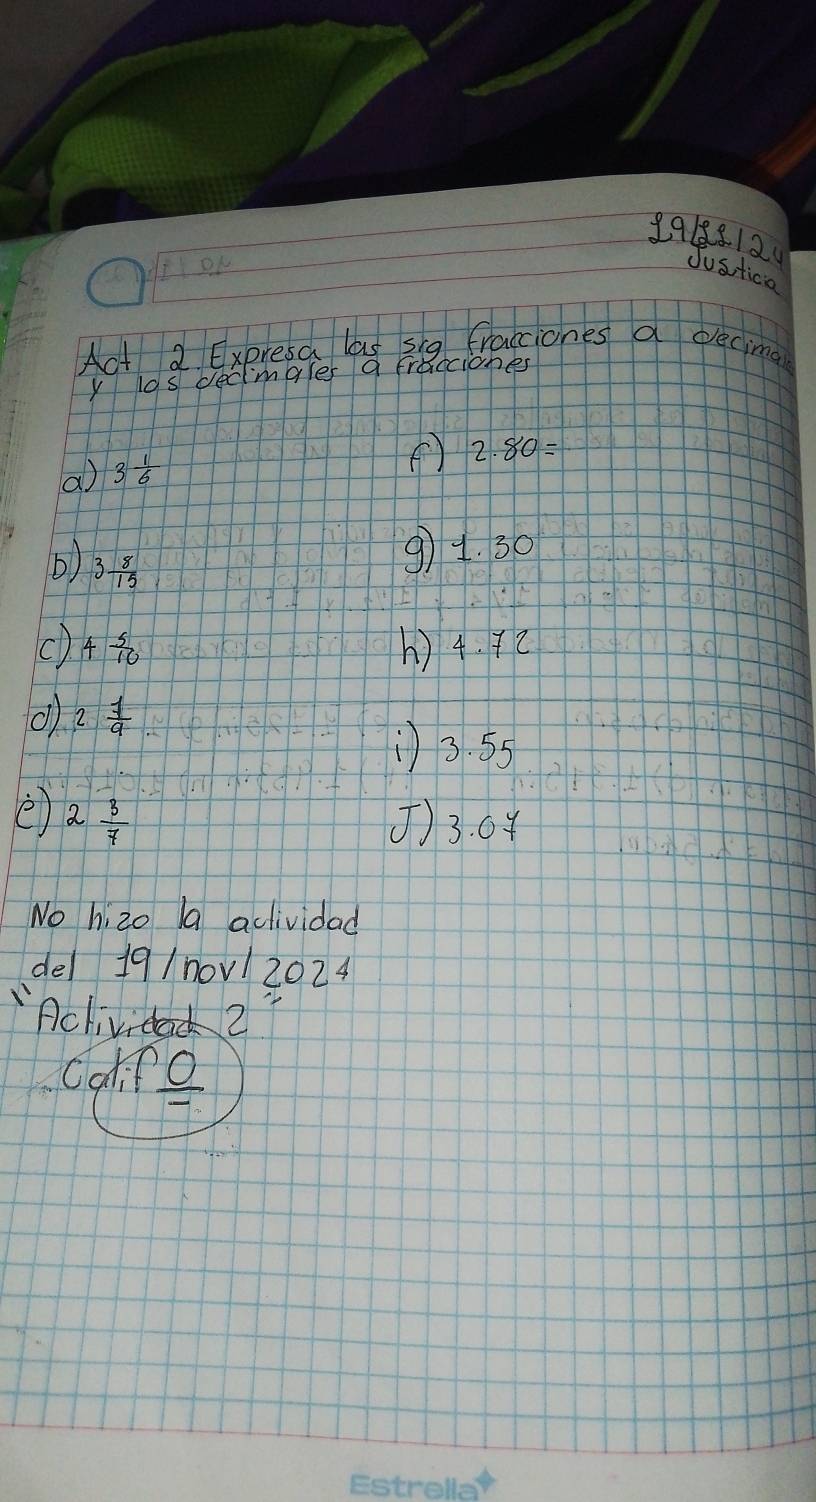 19/11/24
Justicia
Act 2. Expresa las sig fracciones a decimales
y los decimales a fracciones
a) 3 1/6
f) 2.80=
b) 3 8/15
g) 1.30
c) 4 5/10
h) 4.72
d) 2 1/9
i) 3.55
e) 2 3/7
J) 3.07
No hizo la actividad
del 19/nov/2024
"Actividad 2
Calif 0
Estrella